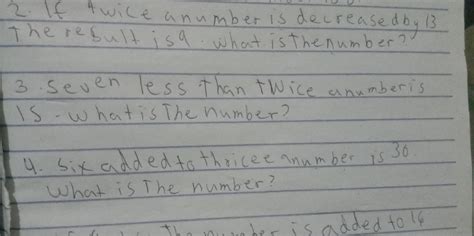 2. If twice anumber is decreasedby 13
The result is 9. what. is thenumber?
3. seven less than twice anumber is
15 - what is The number?
4. six added to thricee number is 30.
What is The number?
The number is added to 16